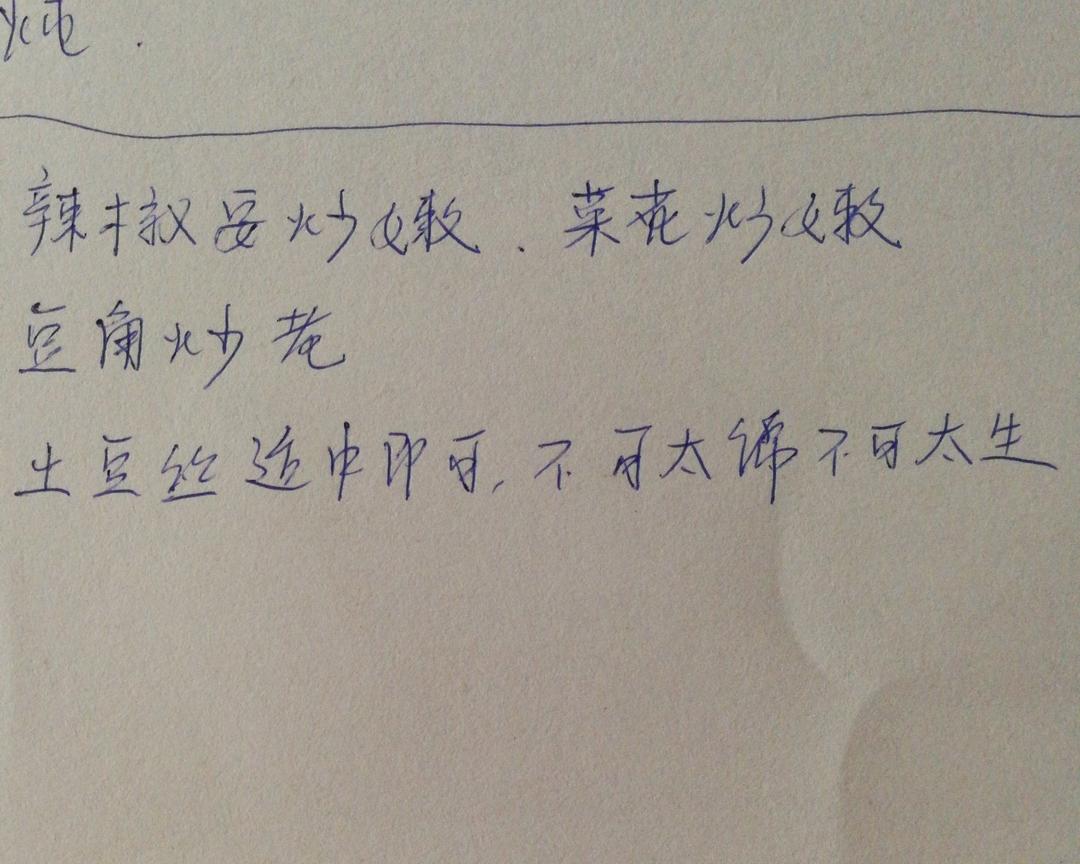 炖.
辣椒要炒嫩.菜花炒嫩
豆角炒老
土豆丝适中即可,不可太绵不可太生